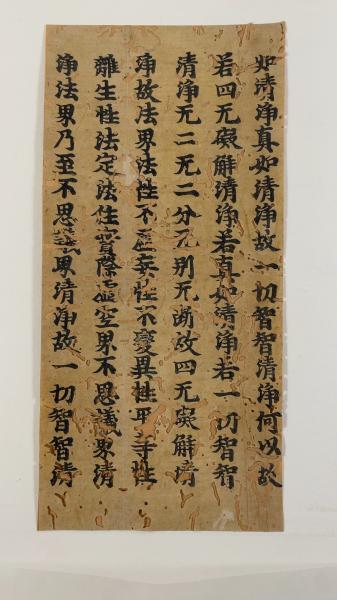 如清淨真如清淨故一切智智清淨何以故
若四无礙解清淨若真如清淨若一切智智
清淨无二无二分无別无断故四无礙解清
淨故法界法性不虛妄性不變異性平等性
離生性法定法住實際虛空界不思議界清
淨法界乃至不思議界清淨故一切智智清